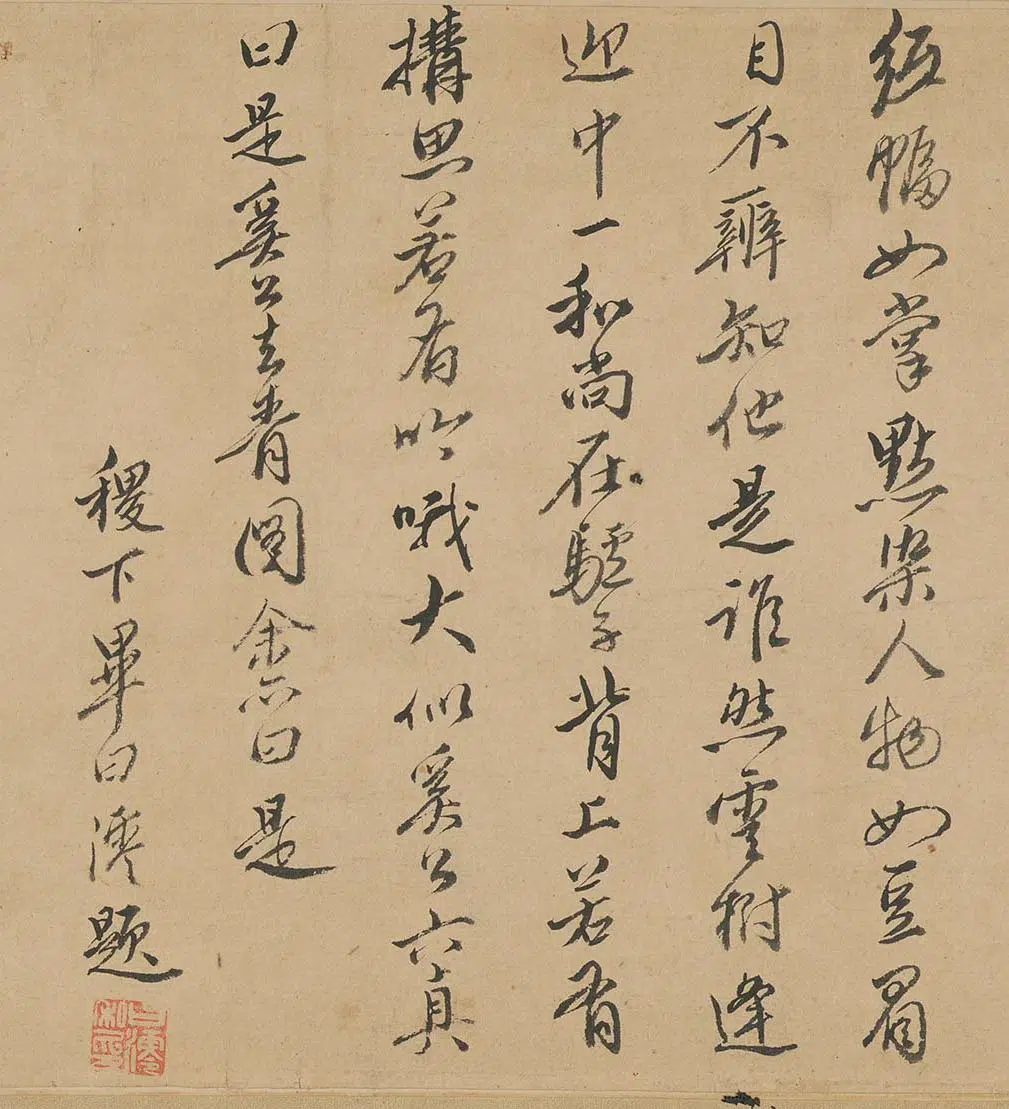 紙幅如掌點染人物如豆眉
目不辨知他是誰然雲樹逢
迎中一和尚在驢子背上若有
搆思若有吟哦大似奚公六真
曰是奚公去青圖余亦曰是
稷下畢日澪題